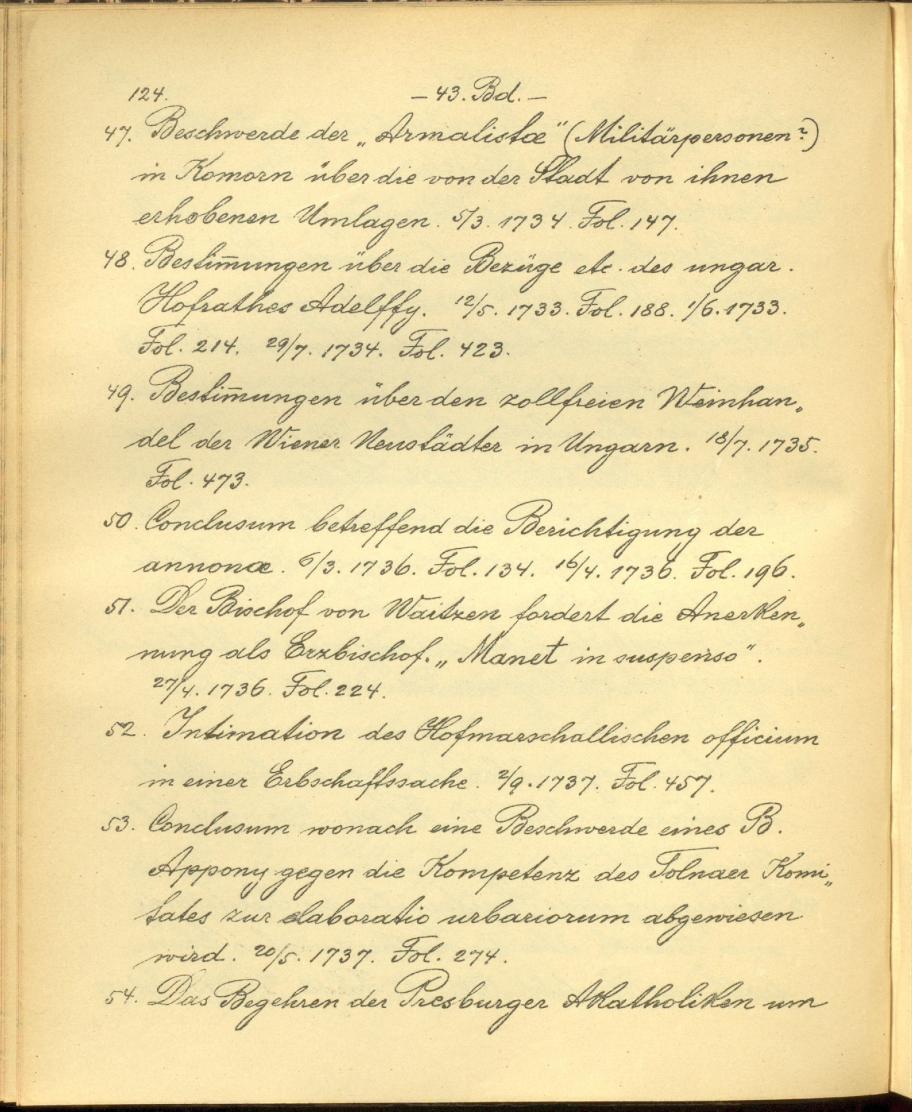 124. – 43. Bd. –
47. Beschwerde der „Armalistæ" (Militärpersonen?)
in Komorn über die von der Stadt von ihnen
erhobenen Umlagen. 5/3. 1734. Fol. 147.
48. Bestim̄ungen über die Bezüge etc. des ungar.
Hofrathes Adelffy. 12/5. 1733. Fol. 188. 1/6. 1733.
Fol. 214. 29/7. 1734. Fol. 423.
49. Bestim̄ungen über den zollfreien Weinhan„
del der Wiener Neustädter in Ungarn. 18/7. 1735.
Fol. 473.
50. Conclusum betreffend die Berichtigung der
annonæ. 6/3. 1736. Fol. 134. 16/4. 1736. Fol. 196.
51. Der Bischof von Waitzen fordert die Anerken„
nung als Erzbischof. „Manet in suspenso".
27/4. 1736. Fol. 224.
52. Intimation des Hofmarschallischen officium
in einer Erbschaftssache. 2/9. 1737. Fol. 457.
53. Conclusum wonach eine Beschwerde eines B.
Appony gegen die Kompetenz des Tolnaer Komi„
tates zur elaboratio urbariorum abgewiesen
wird. 20/5. 1737. Fol. 274.
54. Das Begehren der Presburger Akatholiken um